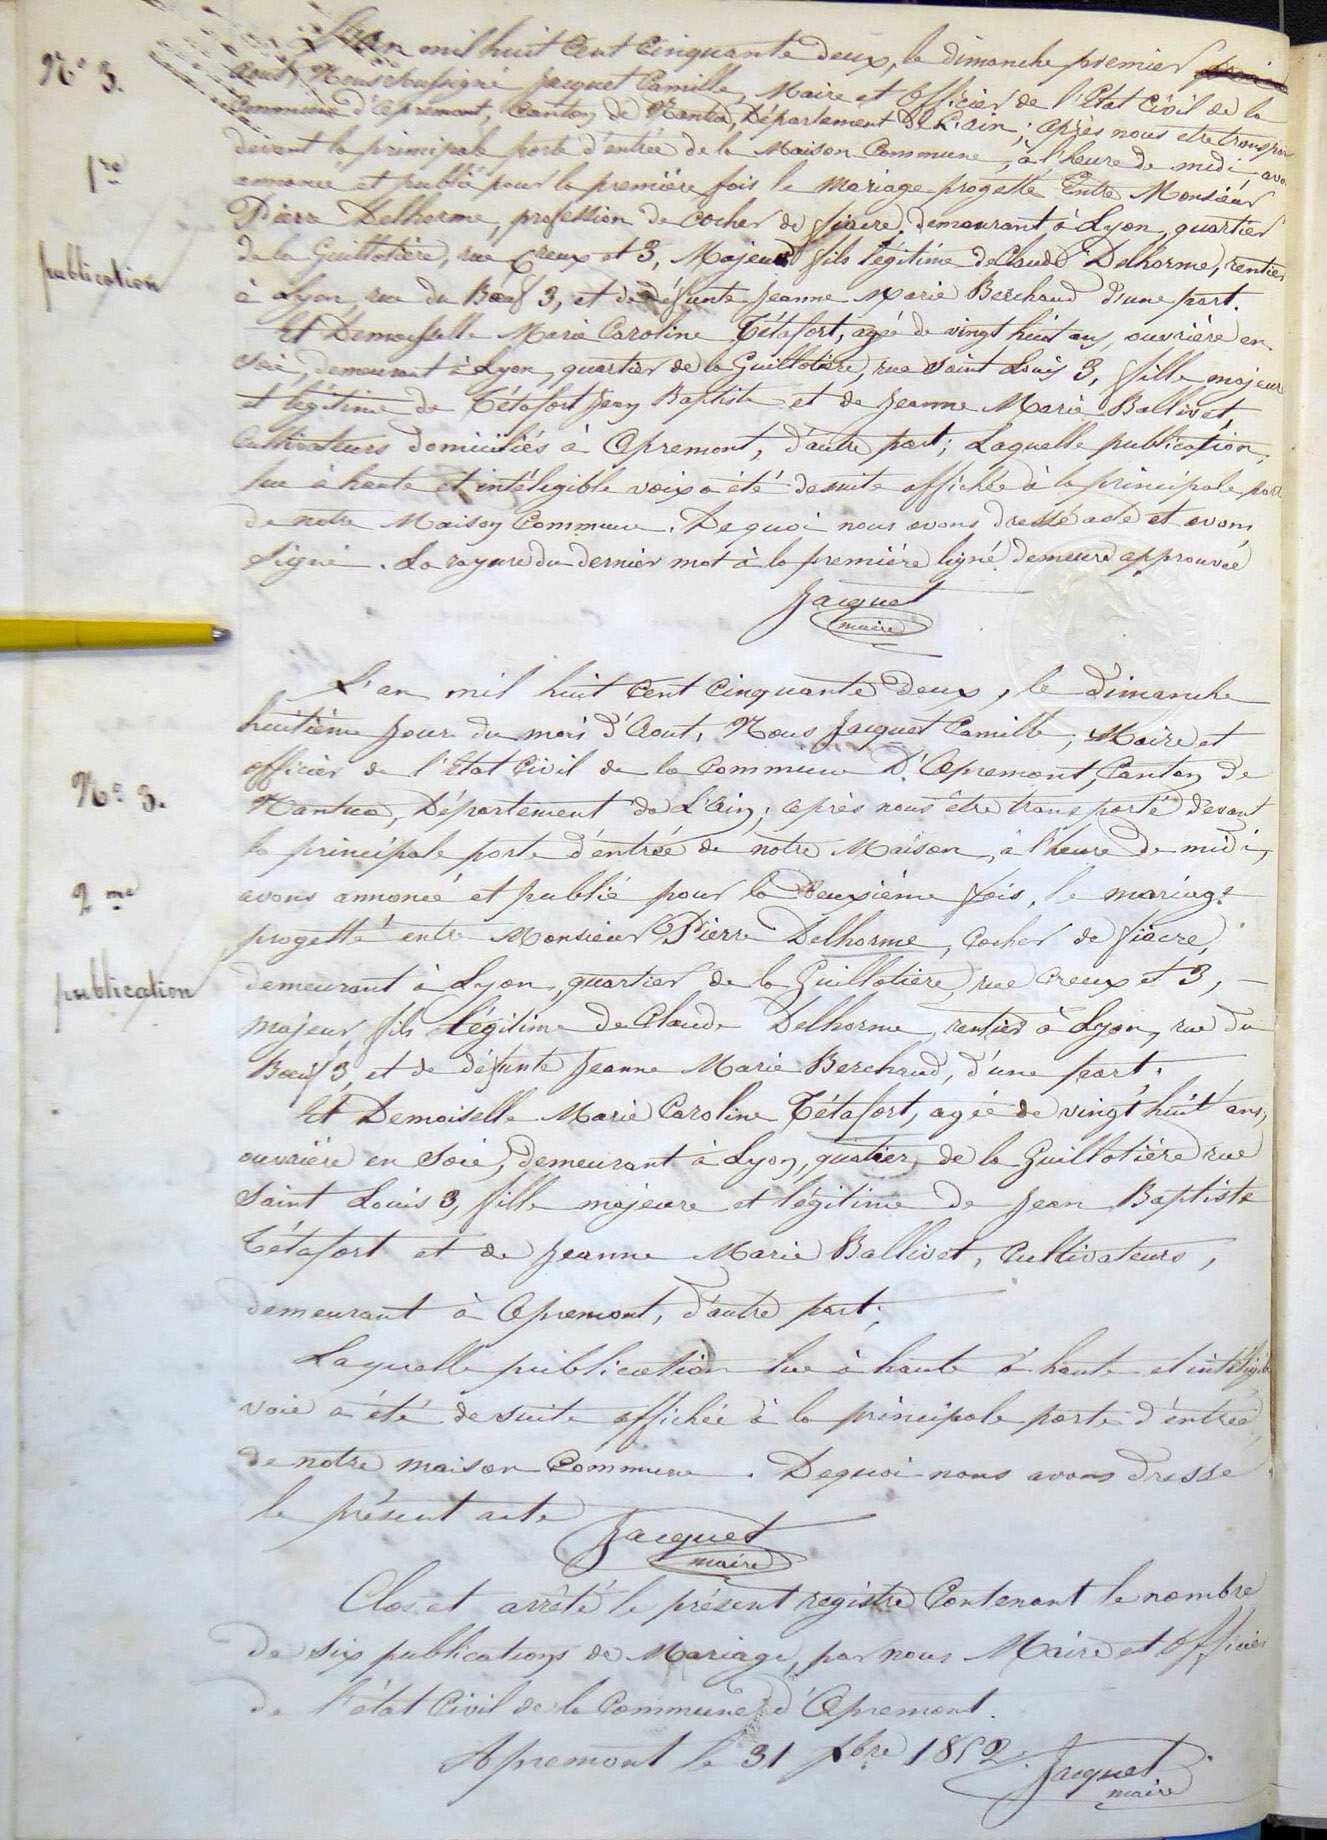 N° 3.
1re
publication
L'an mil huit Cent Cinquante deux, le dimanche premier
Aout, Nous soussigné Jacquet Camille, Maire et Officier de l'Etat Civil de la
Commune d'Apremont, Canton de Nantua, Département de L'ain; après nous etre transpor
devant la principale porte d'entrée de la Maison Commune, à l'heure de midi avo
annoncé et publié pour la première fois le Mariage progetté Entre Monsieur
Pierre Delhorme, profession de Cocher de fiacre, demeurant à Lyon, quartier
de la Guillotière, rue Creux et 3, Majeur fils légitime de Claude Delhorme, rentier
à Lyon, rue du Bœuf 3, et de défunte Jeanne Marie Berchaud d'une part.
Et Demoiselle Marie Caroline Tétafort, agé de vingt huit ans, ouvrière en
Soie, demeurant à Lyon, quartier de la Guillotière, rue Saint Louis 3, fille majeure
et légitime de Tétafort Jean Baptiste et de Jeanne Marie Ballivet,
Cultivateurs domiciliés à Apremont, d'autre part; Laquelle publication,
lue à haute et intéligible voix a été desuite affichée à la principale porte
de notre Maison Commune. De quoi nous avons dressé acte et avons
Signé. La rayure du dernier mot à la première ligne demeure approuvée
Jacquet
maire
L'an mil huit Cent Cinquante Deux, le Dimanche
huitième Jour du mois d'Aout, Nous Jacquet Camille, Maire et
officier de l'Etat Civil de la Commune D'Apremont, Canton de
N° 3.
Nantua, Département de L'Ain; après nous être transporté devant
la principale porte d'entrée de notre Maison, à l'heure de midi,
2me
avons annoncé et publié pour la Deuxième fois, le mariage
progetté entre Monsieur Pierre Delhorme, Cocher de fiacre,
publication
demeurant à Lyon, quartier de la Guillotière, rue Creux et 3, –
majeur fils légitime de Claude Delhorme, rentier à Lyon, rue du
Bœuf 3, et de défunte Jeanne Marie Berchaud, d'une part.
Et Demoiselle Marie Caroline Tétafort, agée de vingt huit ans,
ouvrière en Soie, demeurant à Lyon, quatier de la Guillotière rue
Saint Louis 3, fille majeure et légitime de Jean Baptiste
Tétafort et de Jeanne Marie Ballivet, Cultivateurs,
demeurant à Apremont, d'autre part;
Laquelle publication lue à haute à haute et intéligible
voie a été desuite affichée à la principale porte d'entrée
de notre maison Commune. De quoi nous avons dressé
le présent acte
Jacquet
maire
Clos et arrêté le présent registre Contenant le nombre
De six publications de Mariage, par nous Maire et Officier
de l'état Civil de la Commune d'Apremont.
Apremont le 31 xbre 1852.
Jacquet
maire